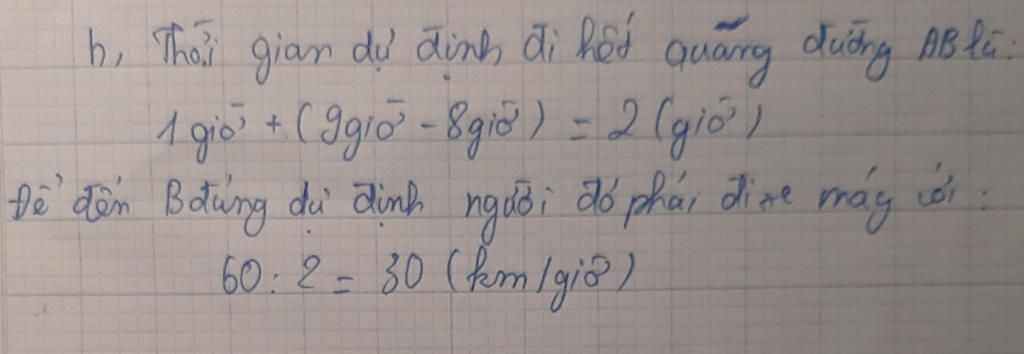 b, Thời gian dự định đi hết quãng đường AB là:
1 giờ + (9giờ - 8giờ) = 2 (giờ)
Để đến B đúng dự định người đó phải đi xe máy với :
60 : 2 = 30 (km/giờ)